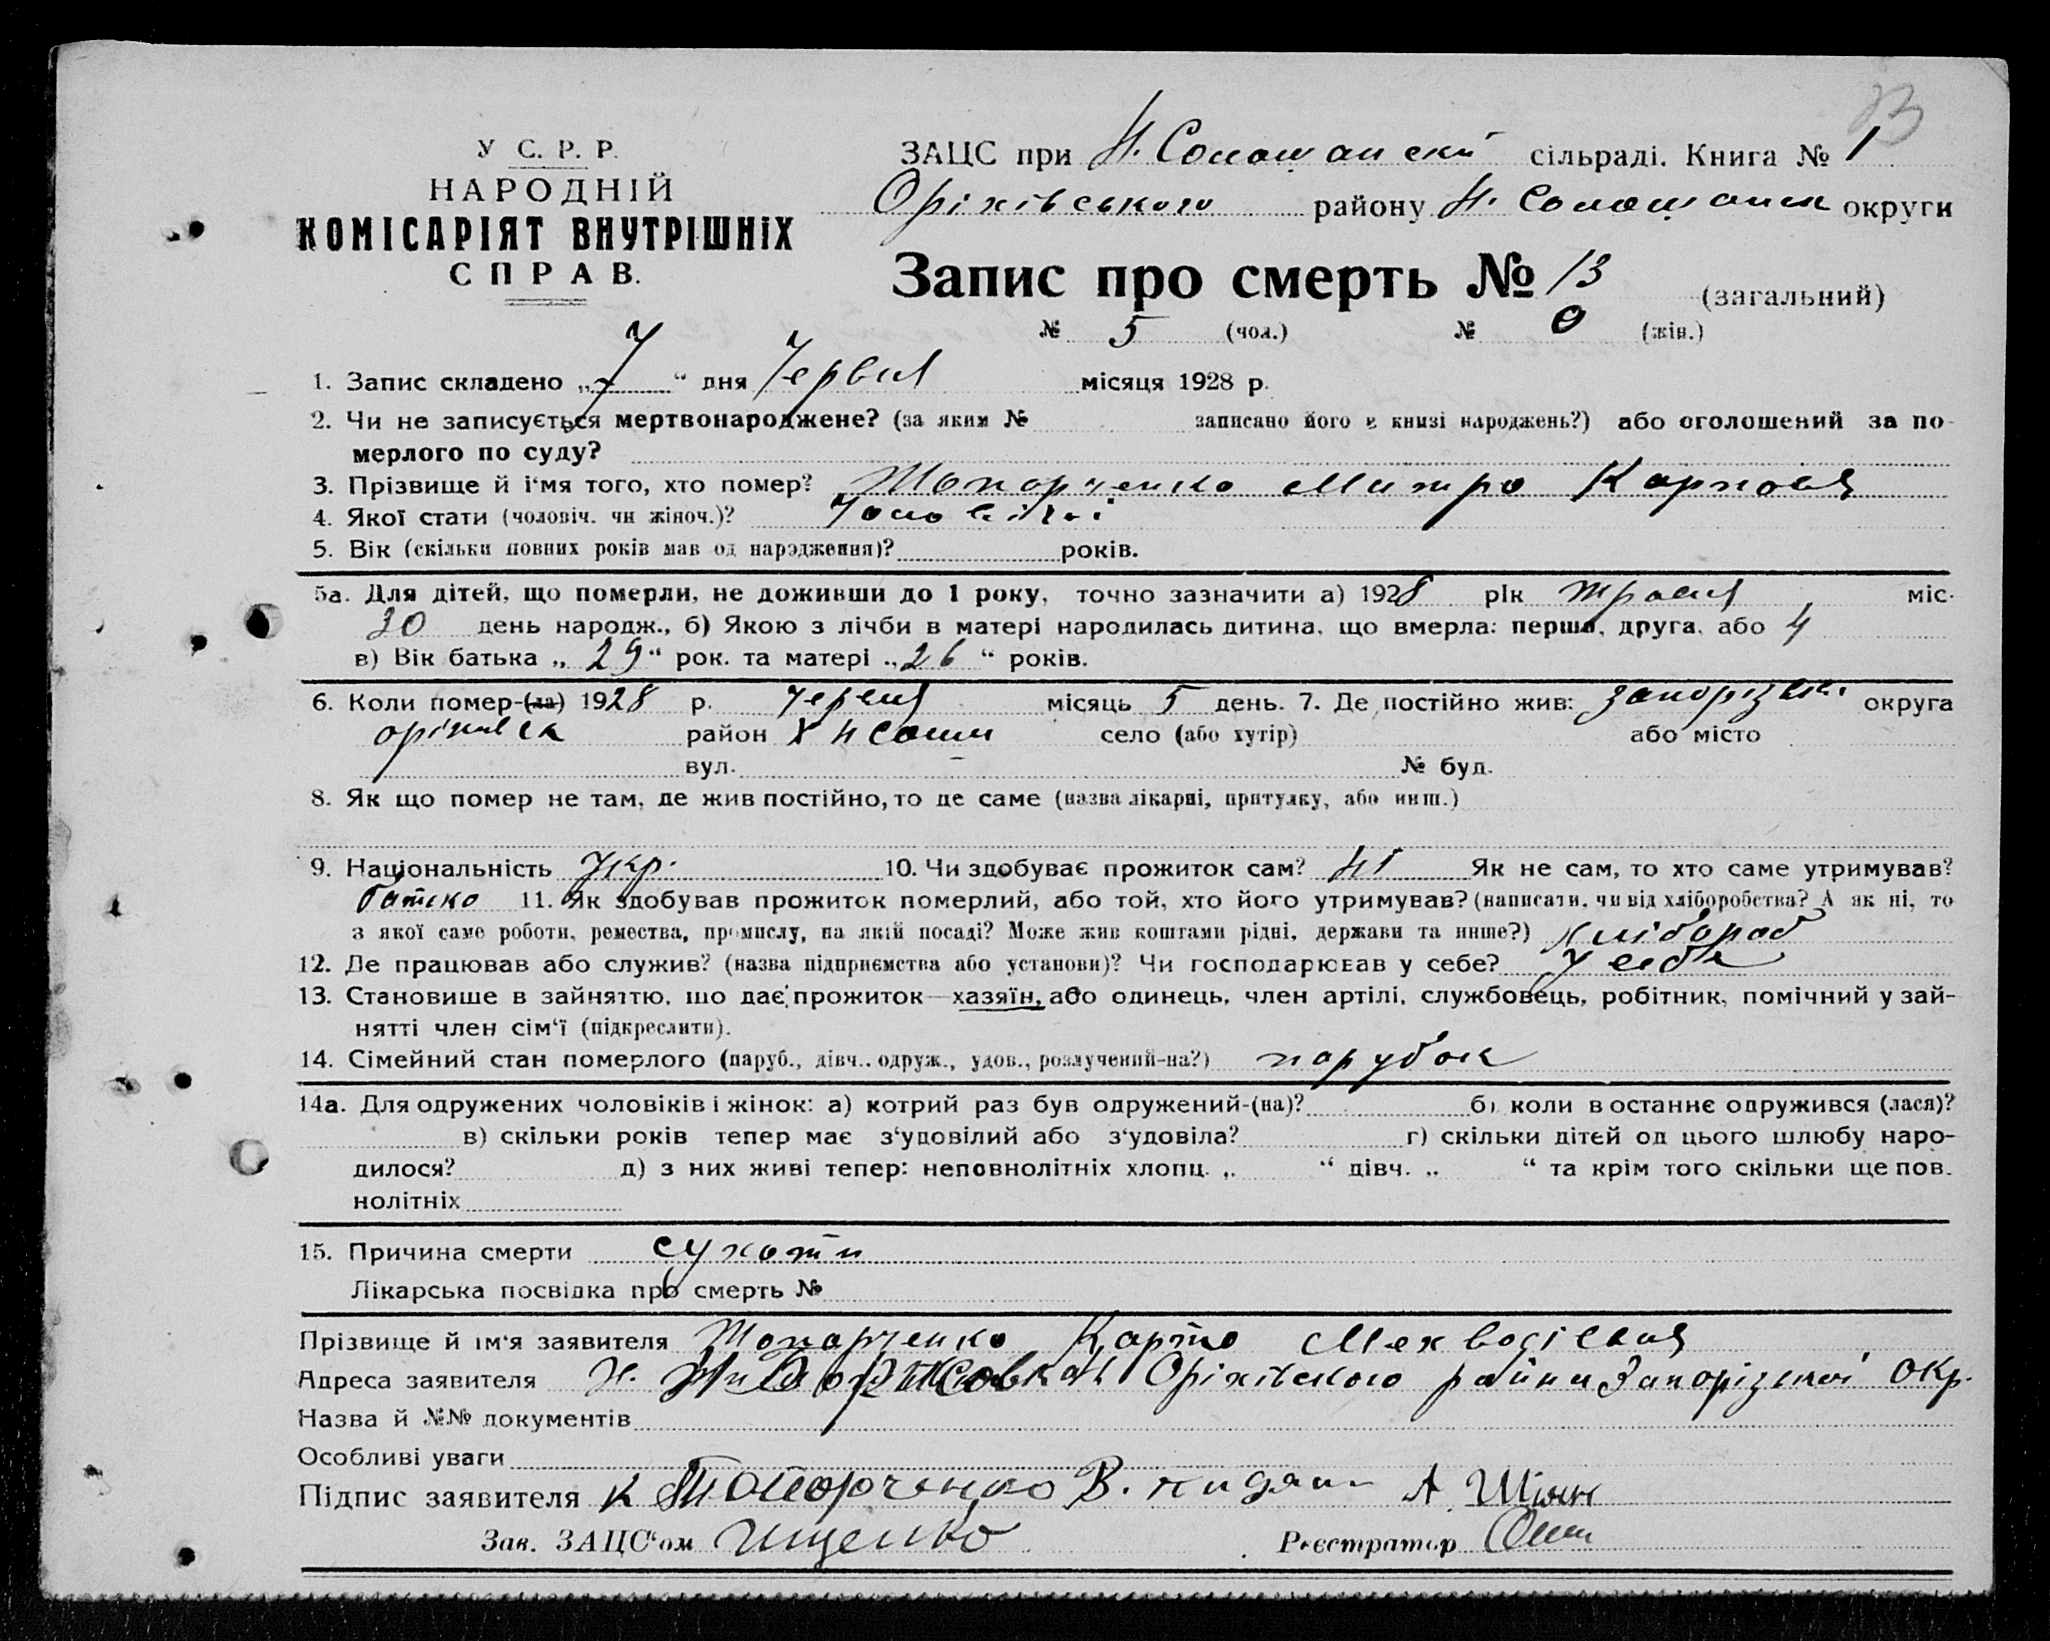 У С. Р. Р.
НАРОДНІЙ
КОМІСАРІЯТ ВНУТРІШНІХ
СПРАВ.
ЗАЦС при сільраді. Книга № 1
Оріхівського району округи
Запис про смерть № 13 (загальний)
№ 5 (чол.) № 0 (жін.)
1. Запис складено „7“ дня Червня місяця 1928 р.
2. Чи не записується мертвонароджене? (за яким № записано його в книзі народжень?) або оголошений за по-
мерлого по суду?
3. Прізвище й і'мя того, хто помер? Топорченко Митро Карповя
4. Якої стати (чоловіч. чи жіноч.)?
5. Вік (скільки повних років мав од народження)? років.
5а. Для дітей, що померли, не доживши до 1 року, точно зазначити а) 1928 рік травня міс.
30 день народж., б) Якою з лічби в матері народилась дитина, що вмерла: перша, друга, або 4
в) Вік батька „29“ рок. та матері „26“ років.
6. Коли помер-(ла) 1928 р. червня місяць 5 день. 7. Де постійно жив: округа
район село (або хутір) або місто
вул. № буд.
8. Як що помер не там, де жив постійно, то де саме (назва лікарні, притулку, або инш.)
9. Національність Укр. 10. Чи здобуває прожиток сам? ні Як не сам, то хто саме утримував?
батько 11. Як здобував прожиток померлий, або той, хто його утримував? (написати, чи від хліборобства? А як ні, то
з якої саме роботи, ремества, промислу, на якій посаді? Може жив коштами рідні, держави та инше?) хлібороб
12. Де працював або служив? (назва підприємства або установи)? Чи господарював у себе? У себе
13. Становище в зайняттю, що дає прожиток—хазяїн, або одинець, член артілі, службовець, робітник, помічний у зай-
нятті член сім'ї (підкреслити).
14. Сімейний стан померлого (паруб., дівч., одруж., удов., розлучений-на?) парубок
14а. Для одружених чоловіків і жінок: а) котрий раз був одружений-(на)? б) коли в останнє одружився (лася)?
в) скільки років тепер має з'удовілий або з'удовіла? г) скільки дітей од цього шлюбу наро-
дилося? д) з них живі тепер: неповнолітніх хлопц. „ “ дівч. „ “ та крім того скільки ще пов.
нолітніх
15. Причина смерти сухоти
Лікарська посвідка про смерть №
Прізвище й ім'я заявителя Топорченко Карпо
Адреса заявителя Оріхівського района Запорізької окр.
Назва й №№ документів
Особливі уваги
Підпис заявителя К Топорченко В.
Зав. ЗАЦС'ом Іщенко Реєстратор